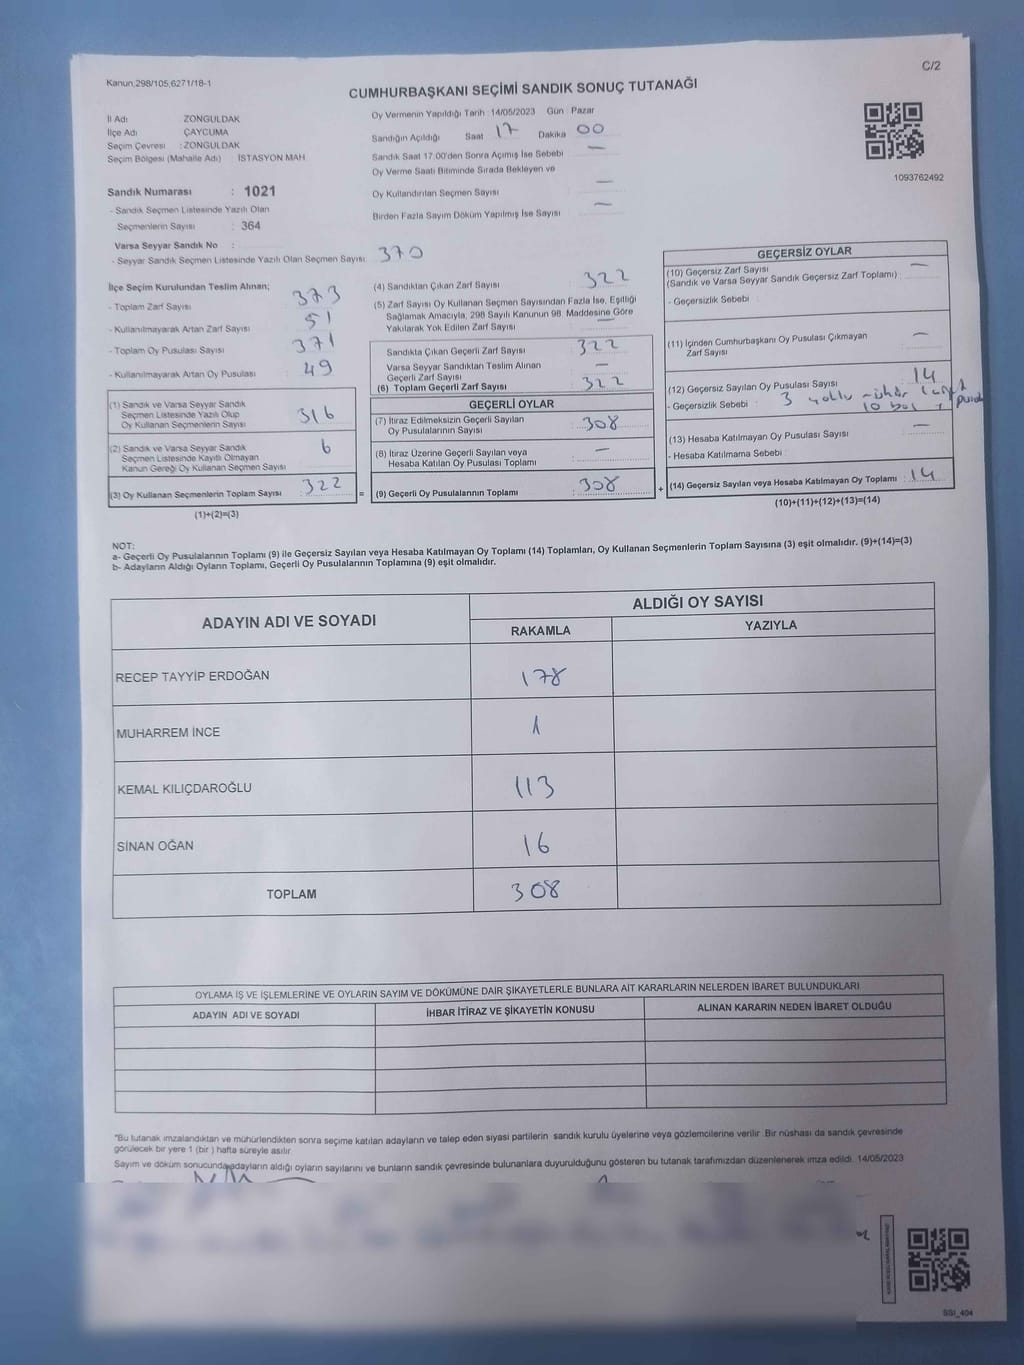 C/2
Kanun;298/105,6271/18-1
CUMHURBAŞKANI SEÇİMİ SANDIK SONUÇ TUTANAĞI
İl Adı ZONGULDAK
İlçe Adı ÇAYCUMA
Seçim Çevresi : ZONGULDAK
Seçim Bölgesi (Mahalle Adı) : İSTASYON MAH.
Sandık Numarası : 1021
- Sandık Seçmen Listesinde Yazılı Olan
Seçmenlerin Sayısı : 364
Varsa Seyyar Sandık No :
- Seyyar Sandık Seçmen Listesinde Yazılı Olan Seçmen Sayısı: 370
Oy Vermenin Yapıldığı Tarih : 14/05/2023 Gün : Pazar
Sandığın Açıldığı Saat 17 Dakika 00
Sandık Saat 17.00'den Sonra Açımış İse Sebebi —
Oy Verme Saati Bitiminde Sırada Bekleyen ve
Oy Kullandırılan Seçmen Sayısı —
Birden Fazla Sayım Döküm Yapılmış İse Sayısı —
1093762492
İlçe Seçim Kurulundan Teslim Alınan;
- Toplam Zarf Sayısı 373
- Kullanılmayarak Artan Zarf Sayısı 51
- Toplam Oy Pusulası Sayısı 371
- Kullanılmayarak Artan Oy Pusulası 49
(1) Sandık ve Varsa Seyyar Sandık
Seçmen Listesinde Yazılı Olup
Oy Kullanan Seçmenlerin Sayısı 316
(2) Sandık ve Varsa Seyyar Sandık
Seçmen Listesinde Kayıtlı Olmayan
Kanun Gereği Oy Kullanan Seçmen Sayısı 6
(3) Oy Kullanan Seçmenlerin Toplam Sayısı : 322 =
(1)+(2)=(3)
(4) Sandıktan Çıkan Zarf Sayısı 322
(5) Zarf Sayısı Oy Kullanan Seçmen Sayısından Fazla İse, Eşitliği
Sağlamak Amacıyla, 298 Sayılı Kanunun 98. Maddesine Göre
Yakılarak Yok Edilen Zarf Sayısı —
Sandıkta Çıkan Geçerli Zarf Sayısı 322
Varsa Seyyar Sandıktan Teslim Alınan
Geçerli Zarf Sayısı —
(6) Toplam Geçerli Zarf Sayısı : 322
GEÇERLİ OYLAR
(7) İtiraz Edilmeksizin Geçerli Sayılan
Oy Pusulalarının Sayısı : 308
(8) İtiraz Üzerine Geçerli Sayılan veya
Hesaba Katılan Oy Pusulası Toplamı : —
(9) Geçerli Oy Pusulalarının Toplamı : 308 +
GEÇERSİZ OYLAR
(10) Geçersiz Zarf Sayısı —
(Sandık ve Varsa Seyyar Sandık Geçersiz Zarf Toplamı) :
- Geçersizlik Sebebi :
(11) İçinden Cumhurbaşkanı Oy Pusulası Çıkmayan —
Zarf Sayısı
(12) Geçersiz Sayılan Oy Pusulası Sayısı : 14
- Geçersizlik Sebebi : 3
10 boş 1
(13) Hesaba Katılmayan Oy Pusulası Sayısı : —
- Hesaba Katılmama Sebebi :
(14) Geçersiz Sayılan veya Hesaba Katılmayan Oy Toplamı : 14
(10)+(11)+(12)+(13)=(14)
NOT:
a- Geçerli Oy Pusulalarının Toplamı (9) ile Geçersiz Sayılan veya Hesaba Katılmayan Oy Toplamı (14) Toplamları, Oy Kullanan Seçmenlerin Toplam Sayısına (3) eşit olmalıdır. (9)+(14)=(3)
b- Adayların Aldığı Oyların Toplamı, Geçerli Oy Pusulalarının Toplamına (9) eşit olmalıdır.
ADAYIN ADI VE SOYADI
ALDIĞI OY SAYISI
RAKAMLA YAZIYLA
RECEP TAYYİP ERDOĞAN 178
MUHARREM İNCE 1
KEMAL KILIÇDAROĞLU 113
SİNAN OĞAN 16
TOPLAM 308
OYLAMA İŞ VE İŞLEMLERİNE VE OYLARIN SAYIM VE DÖKÜMÜNE DAİR ŞİKAYETLERLE BUNLARA AİT KARARLARIN NELERDEN İBARET BULUNDUKLARI
ADAYIN ADI VE SOYADI İHBAR İTİRAZ VE ŞİKAYETİN KONUSU ALINAN KARARIN NEDEN İBARET OLDUĞU
"Bu tutanak imzalandıktan ve mühürlendikten sonra seçime katılan adayların ve talep eden siyasi partilerin sandık kurulu üyelerine veya gözlemcilerine verilir .Bir nüshası da sandık çevresinde
görülecek bir yere 1 (bir ) hafta süreyle asılır.
Sayım ve döküm sonucunda adayların aldığı oyların sayılarını ve bunların sandık çevresinde bulunanlara duyurulduğunu gösteren bu tutanak tarafımızdan düzenlenerek imza edildi. 14/05/2023
SSI_404